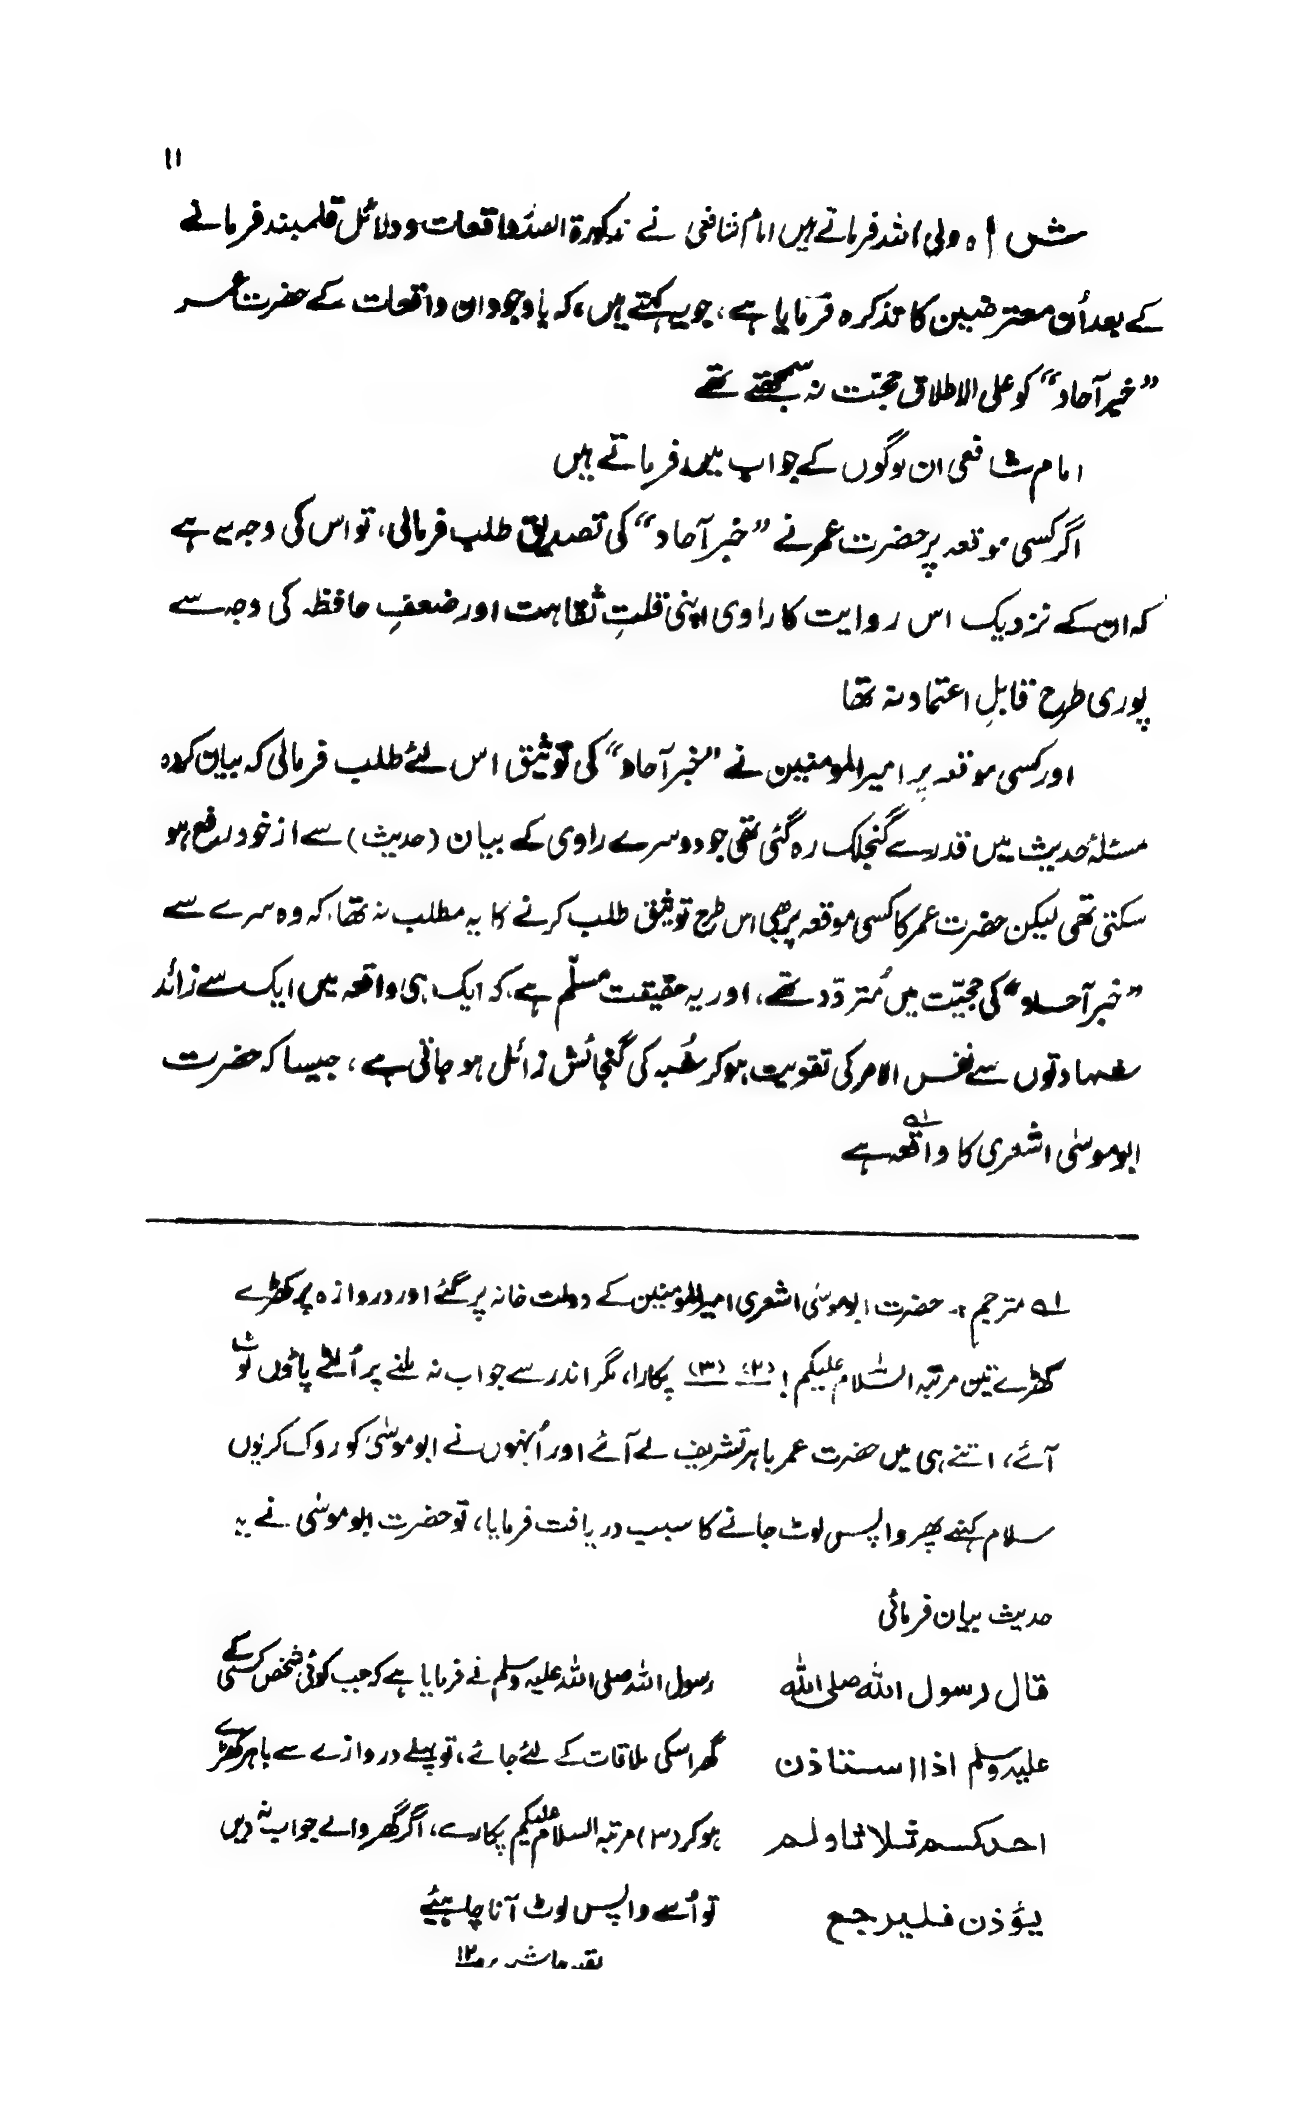 ۱۱
شاہ ولی اللہ فرماتے ہیں امام شافعی نے مذکورۃ الصدر واقعات و دلائل قلمبند فرمانے
کے بعد اُن معترضین کا تذکرہ فرمایا ہے، جو یہ کہتے ہیں، کہ باوجود ان واقعات کے حضرت عمر
”خبر آحاد“ کو علی الاطلاق حجّت نہ سمجھتے تھے
امام شافعی ان لوگوں کے جواب میں فرماتے ہیں
اگر کسی موقعہ پر حضرت عمر نے ”خبر آحاد“ کی تصدیق طلب فرمالی، تو اس کی وجہ یہ ہے
کہ ان کے نزدیک اس روایت کا راوی اپنی قلتِ ثقاہت اور ضعفِ حافظہ کی وجہ سے
پوری طرح قابلِ اعتماد نہ تھا
اور کسی موقعہ پر امیرالمومنین نے ”خبر آحاد“ کی توثیق اس لئے طلب فرمالی کہ بیان کردہ
مسئلۂ حدیث میں قدرے گنجلک رہ گئی تھی جو دوسرے راوی کے بیان (حدیث) سے از خود رفع ہو
سکتی تھی لیکن حضرت عمر کا کسی موقعہ پر بھی اس طرح توثیق طلب کرنے کا یہ مطلب نہ تھا، کہ وہ سرے سے
”خبر آحاد“ کی حجیّت میں مُتردّد تھے، اور یہ حقیقت مسلّم ہے، کہ ایک ہی واقعہ میں ایک سے زائد
شہادتوں سے نفس الامر کی تقویت ہو کر شُبہ کی گنجائش زائل ہو جاتی ہے، جیسا کہ حضرت
ابو موسٰی اشعری کا واقعہ ہے ؎۱
؎۱ مترجم :۔ حضرت ابو موسٰی اشعری امیرالمومنین کے دولت خانہ پر گئے اور دروازہ پر کھڑے
کھڑے تین مرتبہ السّلام علیکم! (۲) (۳) پکارا، مگر اندر سے جواب نہ ملنے پر اُلٹے پاؤں لوٹ
آئے، اتنے ہی میں حضرت عمر باہر تشریف لے آئے اور اُنہوں نے ابو موسٰی کو روک کر یوں
سلام کہنے پھر واپس لوٹ جانے کا سبب دریافت فرمایا، تو حضرت ابو موسٰی نے یہ
حدیث بیان فرمائی
قال رسول اللہ صلی اللہ رسول اللہ صلی اللہ علیہ وسلم نے فرمایا ہے کہ جب کوئی شخص کسی کے
علیہ وسلم اذا استاذن گھر اسکی ملاقات کے لئے جائے، تو پہلے دروازے سے باہر کھڑے
احدکم ثلاثا ولم ہو کر (۳) مرتبہ السلام علیکم پکارے، اگر گھر والے جواب نہ دیں
یؤذن فلیرجع تو اُسے واپس لوٹ آنا چاہیئے
بقیہ حاشیہ بر ص۱۲